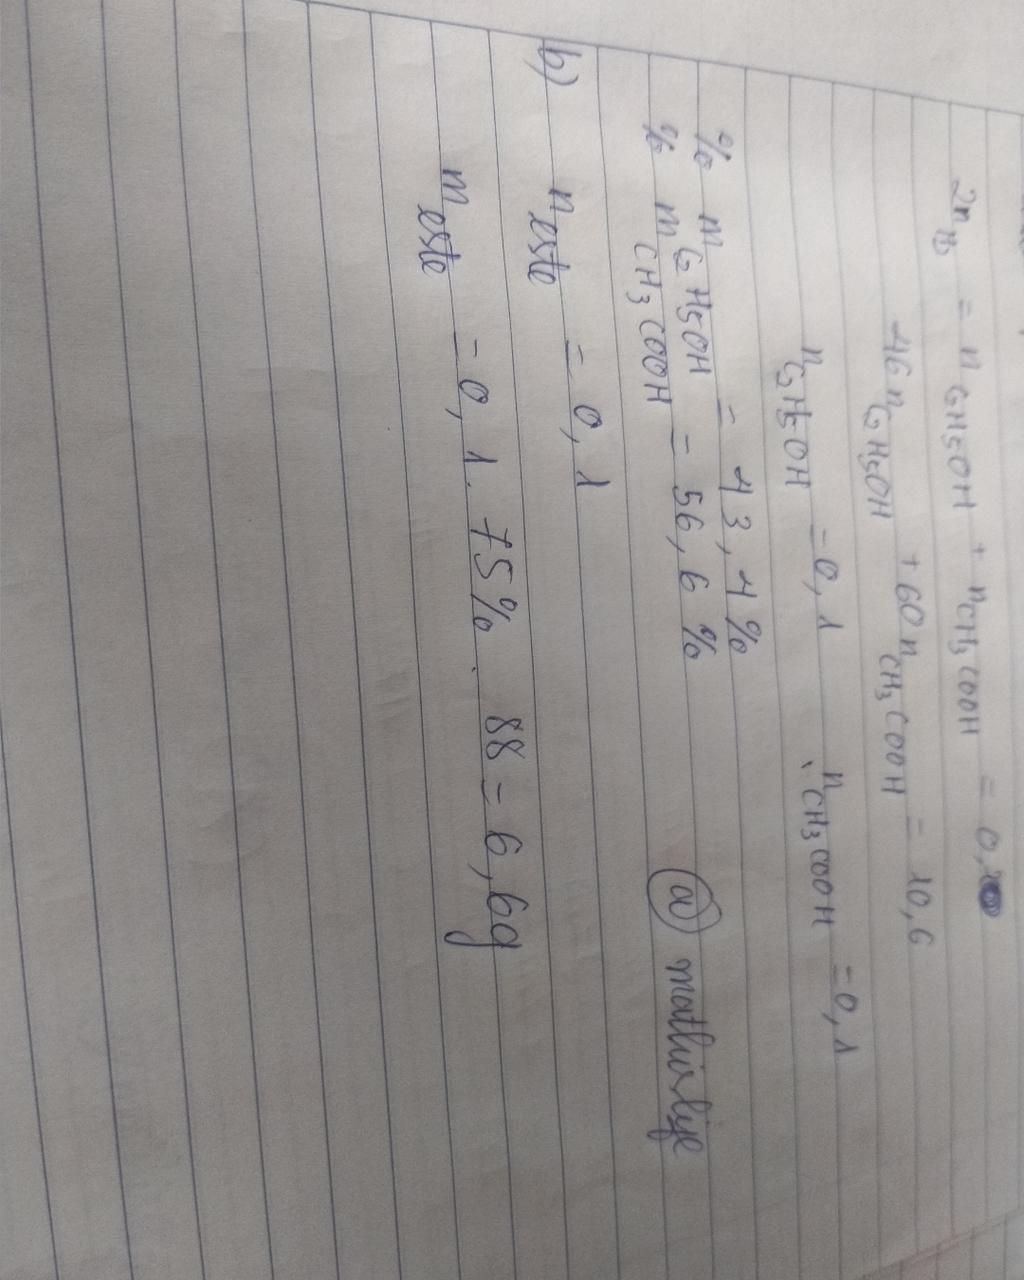 2n_{H_2} = n_{C_2H_5OH} + n_{CH_3COOH} = 0,2
46n_{C_2H_5OH} + 60n_{CH_3COOH} = 10,6
n_{C_2H_5OH} = 0,1 , n_{CH_3COOH} = 0,1
% m_{C_2H_5OH} = 43,4%
% m_{CH_3COOH} = 56,6 % @ mathislife
b) n_{este} = 0,1
m_{este} = 0,1 . 75% . 88 = 6,6g